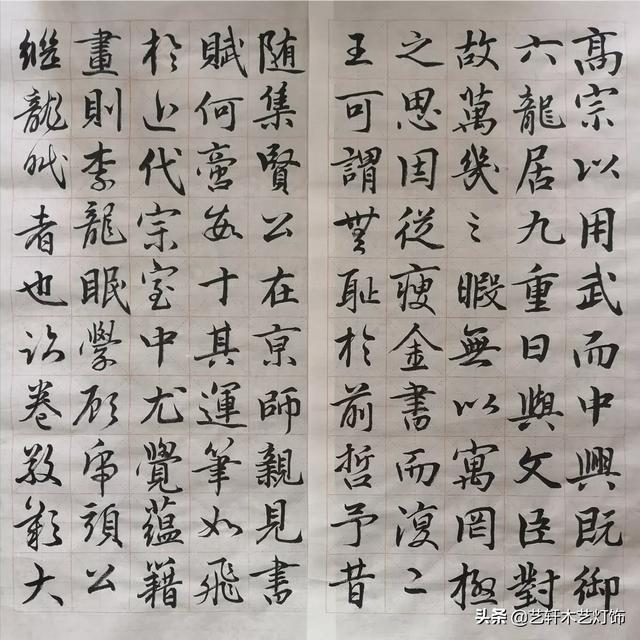 高宗以用武而中興既御
六龍居九重日與文臣對
故萬幾之暇無以寓罔極
之思因從瘦金書而復二
王可謂無耻於前哲予昔
随集賢公在京師親見書
賦何啻數十其運筆如飛
於近代宗室中尤覺蘊籍
畫則李龍眠學顧虎頭公
繼龍眠者也卷敬歎大
头条 @艺轩木艺灯饰